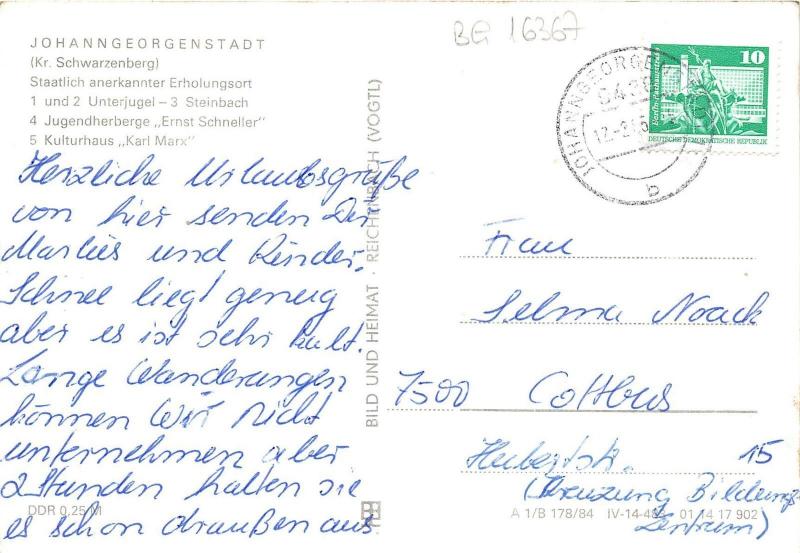 BG 16367
JOHANNGEORGENSTADT
(Kr. Schwarzenberg)
Staatlich anerkannter Erholungsort
1 und 2 Unterjugel – 3 Steinbach
4 Jugendherberge „Ernst Schneller"
5 Kulturhaus „Karl Marx"
Herzliche Urlaubsgrüße
von hier senden Dir
Marlies und Kinder.
Schnee liegt genug
aber es ist sehr kalt.
Lange Wanderungen
können wir nicht
unternehmen aber
2 Stunden halten sie
es schon draußen aus
DDR 0,25 M
BILD UND HEIMAT · REICHENBACH (VOGTL)
10
DEUTSCHE DEMOKRATISCHE REPUBLIK
b
Frau
Selma Noack
7500 Cottbus
15
(Kreuzung Bildungs
Zentrum)
A 1/B 178/84 IV-14-483 01 14 17 902